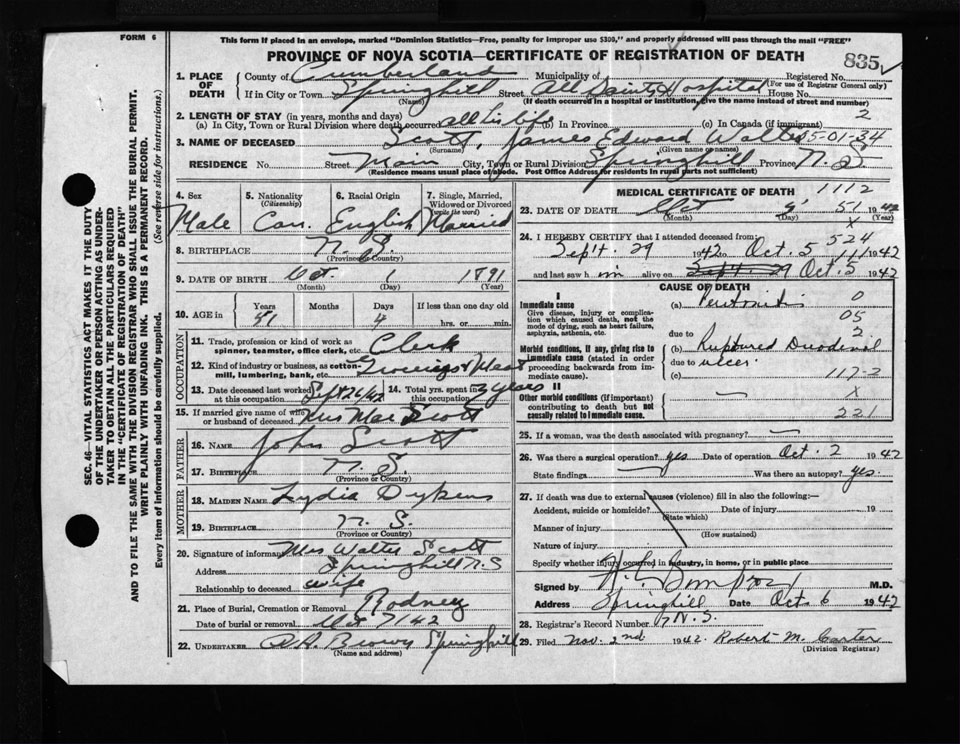 FORM 6
This form if placed in an envelope, marked "Dominion Statistics—Free, penalty for improper use $300," and properly addressed will pass through the mail "FREE"
PROVINCE OF NOVA SCOTIA—CERTIFICATE OF REGISTRATION OF DEATH
835
1. PLACE OF DEATH County of Cumberland Municipality of Registered No.
(For use of Registrar General only)
If in City or Town Springhill Street All Saints Hospital House No.
(Name) (If death occurred in a hospital or institution, give the name instead of street and number)
2. LENGTH OF STAY (in years, months and days) 2
(a) In City, Town or Rural Division where death occurred all his life (b) In Province (c) In Canada (if immigrant)
3. NAME OF DECEASED Scott, James Edward Walter 55-01-34
(Surname) (Given name or names)
RESIDENCE No. Street Main City, Town or Rural Division Springhill Province N.S.
(Residence means usual place of abode. Post Office Address for residents in rural parts not sufficient)
4. Sex Male
5. Nationality (Citizenship) Can.
6. Racial Origin English
7. Single, Married, Widowed or Divorced (write the word) Married
8. BIRTHPLACE N.S.
(Province or Country)
9. DATE OF BIRTH Oct. 1 1891
(Month) (Day) (Year)
10. AGE in Years 51 Months Days 4 If less than one day old hrs. or min.
OCCUPATION
11. Trade, profession or kind of work as spinner, teamster, office clerk, etc. Clerk
12. Kind of industry or business, as cotton-mill, lumbering, bank, etc. Groceries & Meat
13. Date deceased last worked at this occupation Sept 26/42 14. Total yrs. spent in this occupation years
15. If married give name of wife or husband of deceased Mae Scott
FATHER
16. NAME John Scott
17. BIRTHPLACE N.S.
(Province or Country)
MOTHER
18. MAIDEN NAME Lydia Dykens
19. BIRTHPLACE N.S.
(Province or Country)
20. Signature of informant Mrs Walter Scott
Address Springhill N.S
Relationship to deceased wife
21. Place of Burial, Cremation or Removal Rodney
Date of burial or removal Oct 7/42
22. UNDERTAKER A. Brown Springhill
(Name and address)
MEDICAL CERTIFICATE OF DEATH 1112
23. DATE OF DEATH Oct 51 1942
(Month) (Day) (Year)
X
24. I HEREBY CERTIFY that I attended deceased from: 524
Sept. 29 1942 to Oct. 5 1942
111
and last saw him alive on Sept. 29 Oct. 5 1942
CAUSE OF DEATH
I
Immediate cause
Give disease, injury or complication which caused death, not the mode of dying, such as heart failure, asphyxia, asthenia, etc.
(a) Peritonitis 0
05
due to 2
Morbid conditions, if any, giving rise to immediate cause (stated in order proceeding backwards from immediate cause).
(b) Ruptured Duodenal
due to ulcer
(c) 117-2
II
Other morbid conditions (if important) contributing to death but not causally related to immediate cause.
X
221
25. If a woman, was the death associated with pregnancy?
26. Was there a surgical operation? yes Date of operation Oct. 2 1942
State findings Was there an autopsy? yes.
27. If death was due to external causes (violence) fill in also the following:—
Accident, suicide or homicide? Date of injury 19
(State which)
Manner of injury
(How sustained)
Nature of injury
Specify whether injury occurred in industry, in home, or in public place
Signed by M.D.
Address Springhill Date Oct. 6 1942
N.S.
28. Registrar's Record Number
29. Filed Nov. 2nd 1942. Robert M. Carter
(Division Registrar)
SEC. 46—VITAL STATISTICS ACT MAKES IT THE DUTY OF THE UNDERTAKER OR PERSON ACTING AS UNDERTAKER TO OBTAIN ALL THE PARTICULARS REQUIRED IN THE "CERTIFICATE OF REGISTRATION OF DEATH" AND TO FILE THE SAME WITH THE DIVISION REGISTRAR WHO SHALL ISSUE THE BURIAL PERMIT.
WRITE PLAINLY WITH UNFADING INK. THIS IS A PERMANENT RECORD.
Every item of information should be carefully supplied. (See reverse side for instructions.)